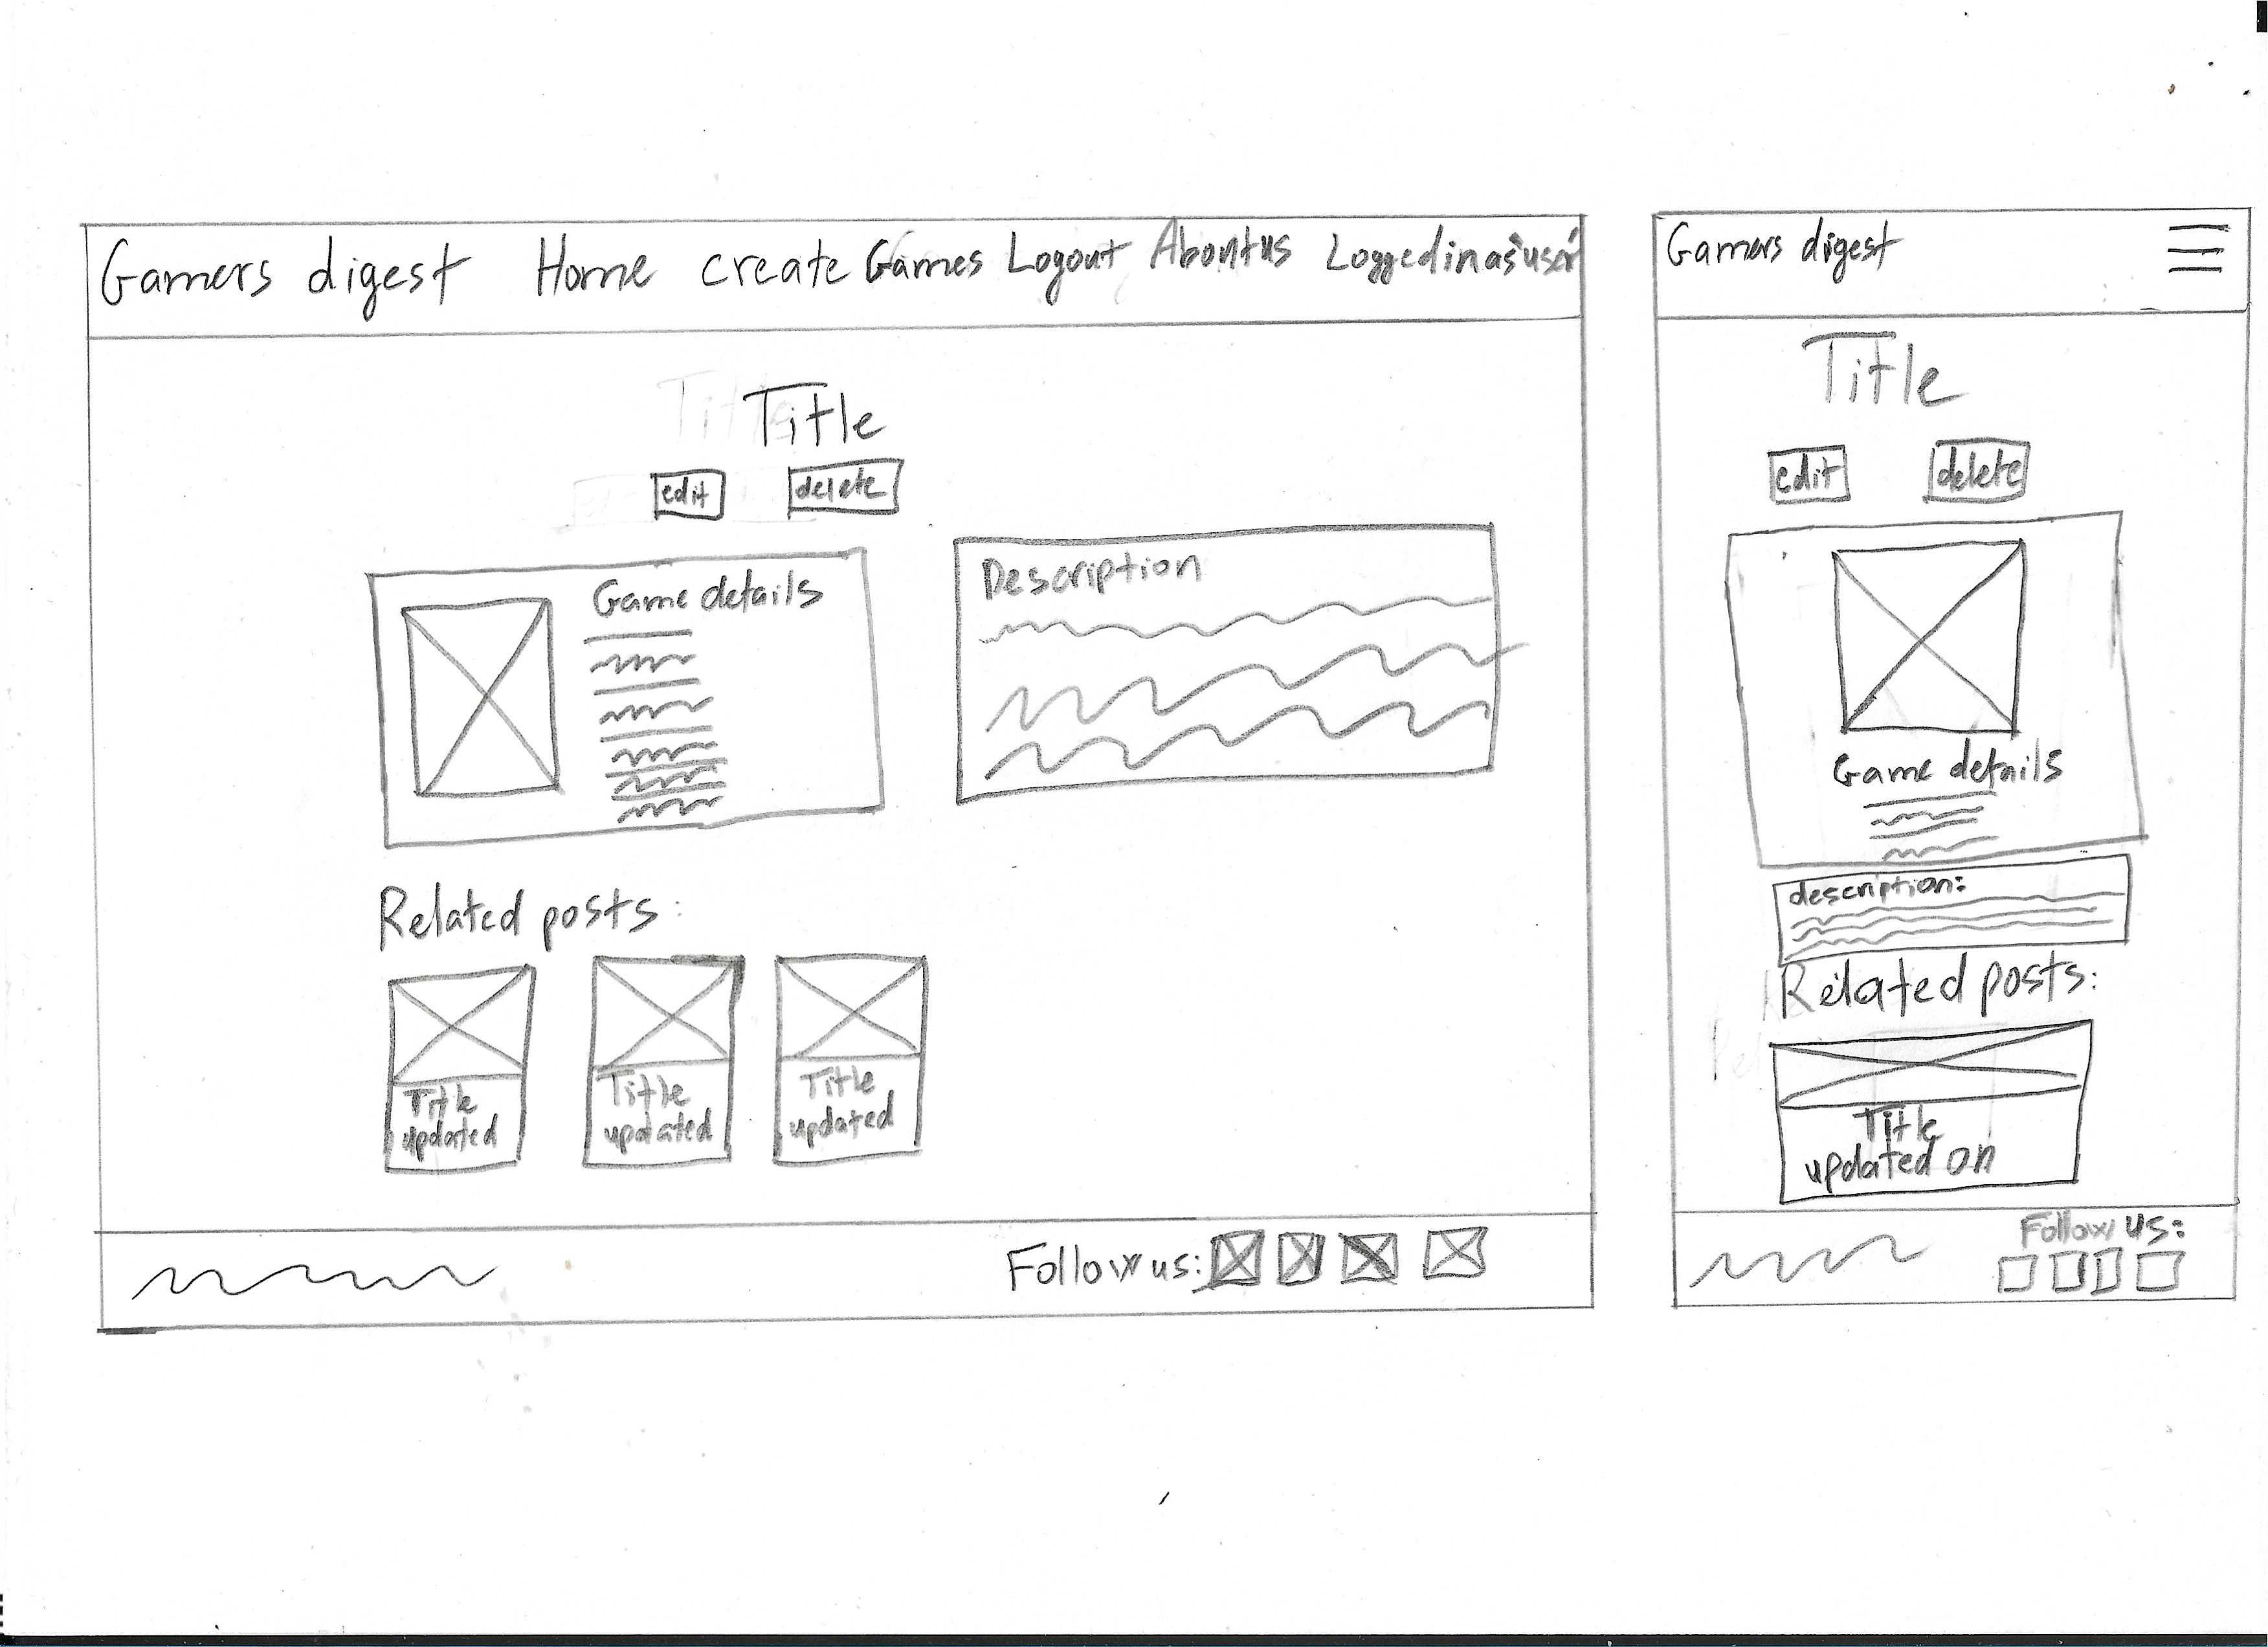 Gamers digest Home create Games Logout About us Logged in as 'user'
Title
edit delete
Game details
Description
Related posts:
Title
updated
Title
updated
Title
updated
Follow us:
Gamers digest
Title
edit delete
Game details
description:
Related posts:
Title
updated on
Follow us: